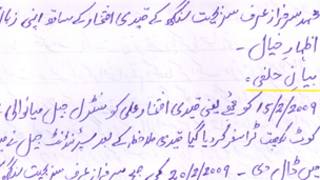 محمد سرفراز عرف سربجیت سنگھ کے قیدی افتخار کے ساتھ اپنی زبا
اظہارِ خیال ۔
بیانِ حلفی :
15/2/2009 کو مجھے یعنی قیدی افتخار علی کو سنٹرل جیل میانوالی
کوٹ لکھپت ٹرانسفر کر دیا گیا قیدی ملاحظہ کے بعد سپرنٹنڈنٹ جیل نے
میں ڈال دی ۔ 20/2/2009 کو سرفراز عرف سربجیت سنگھ